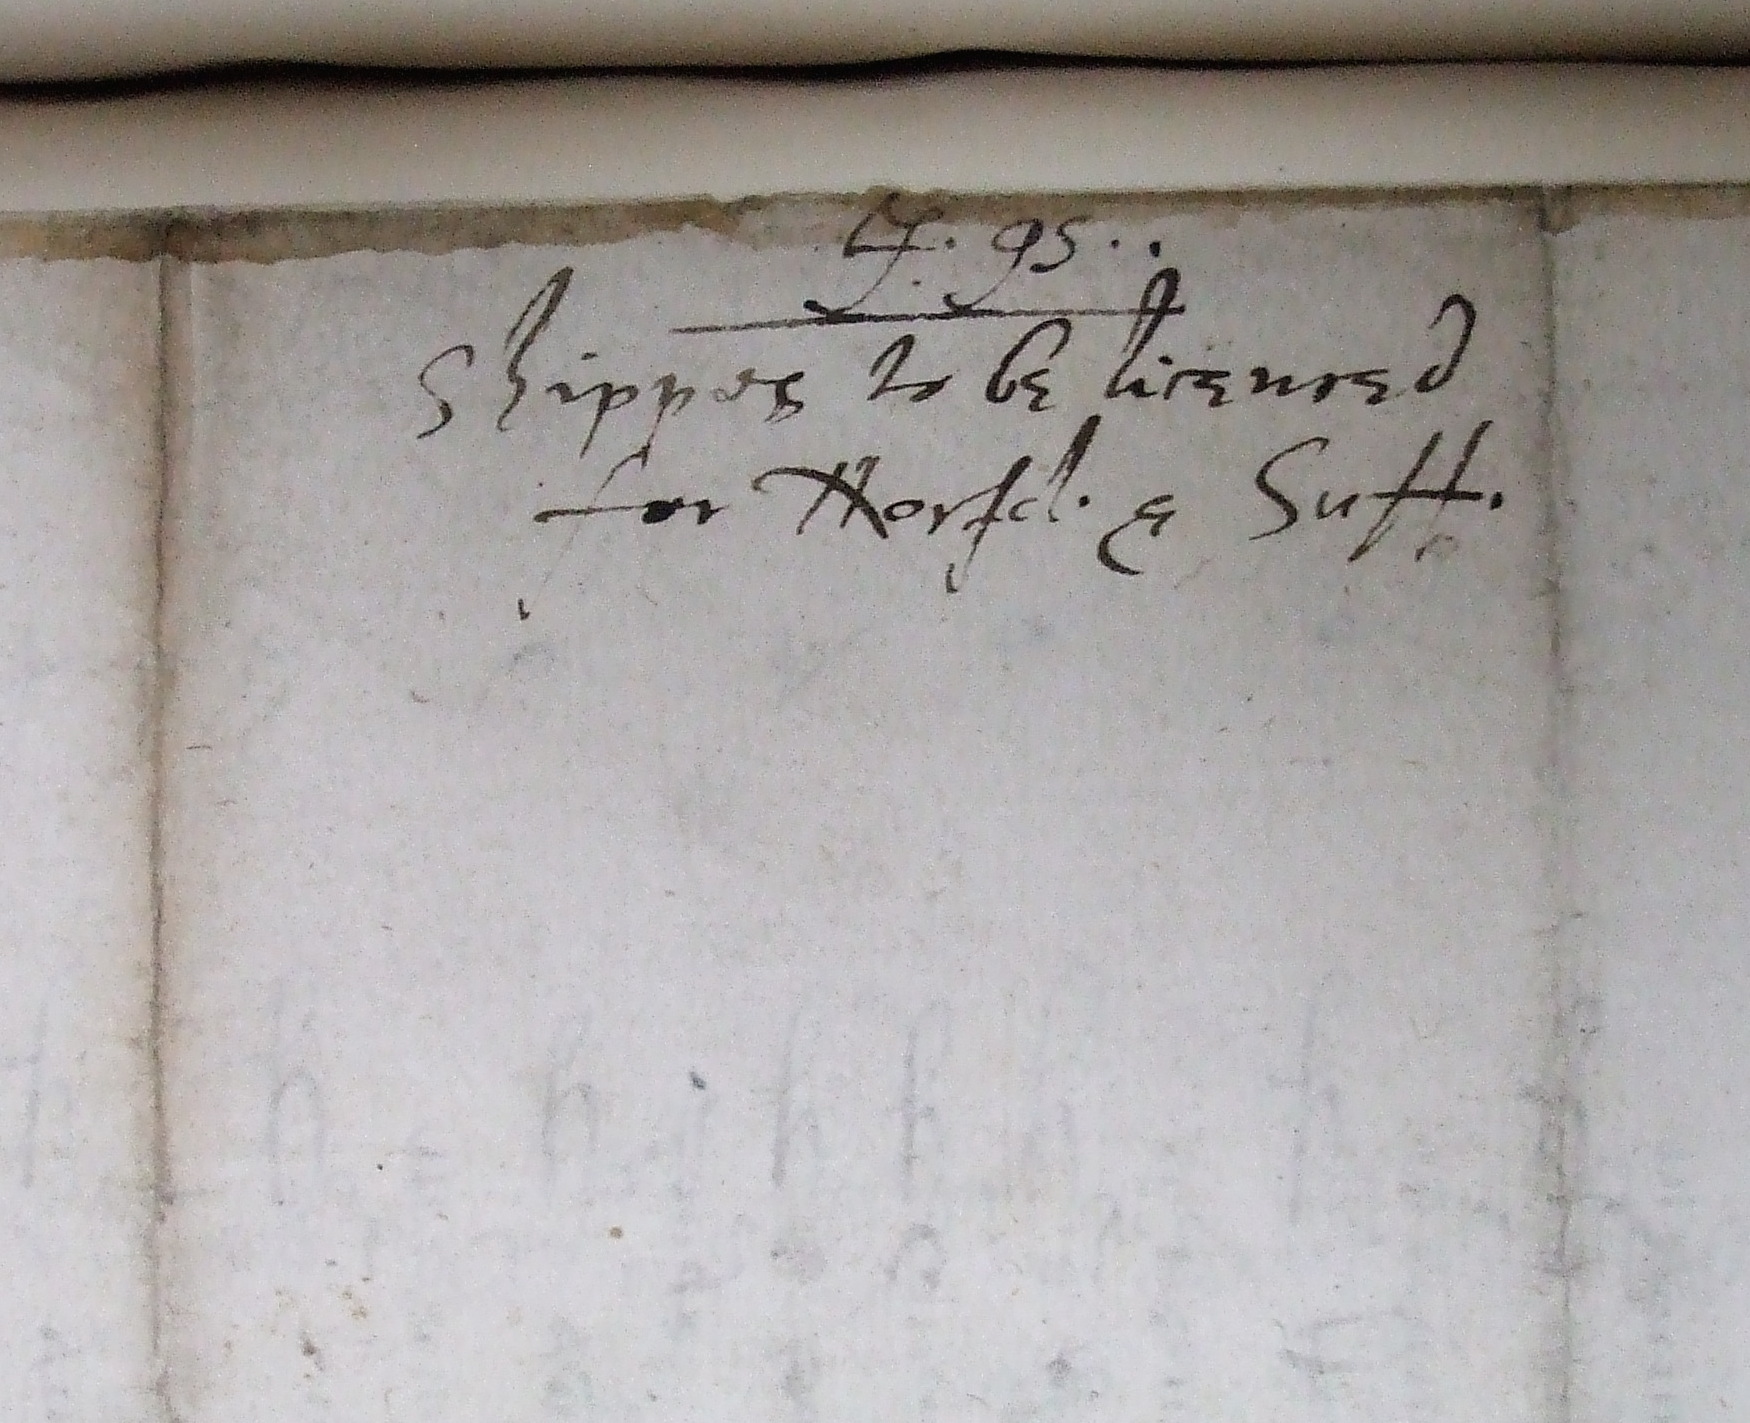 Shippes to be licensed
for Norfcl. & Suff.